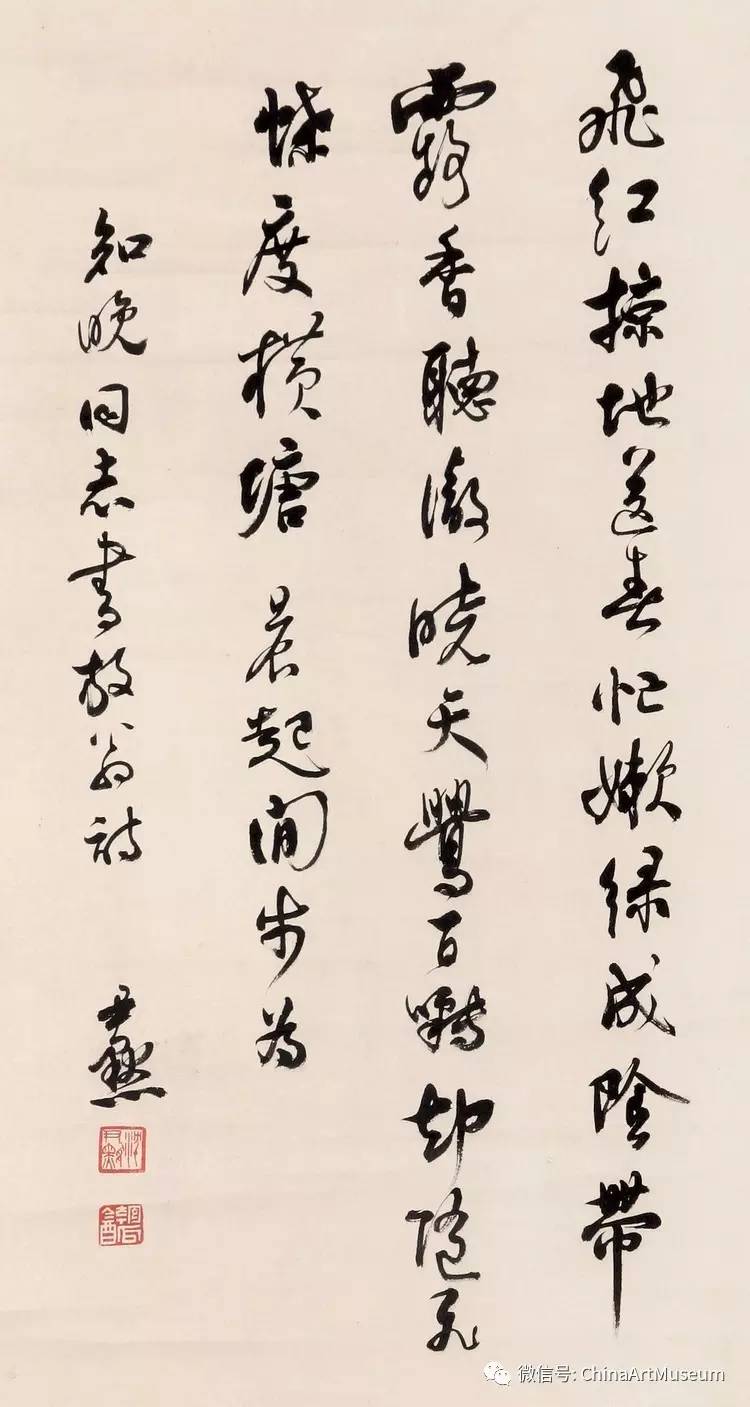 飛紅掠地送春忙嫩綠成陰帶
露香聽徹曉天鶯百囀却隨飛
蝶度橫塘 晨起閒步為
知晚同志書放翁詩 尹默
沈尹默
微信号: ChinaArtMuseum